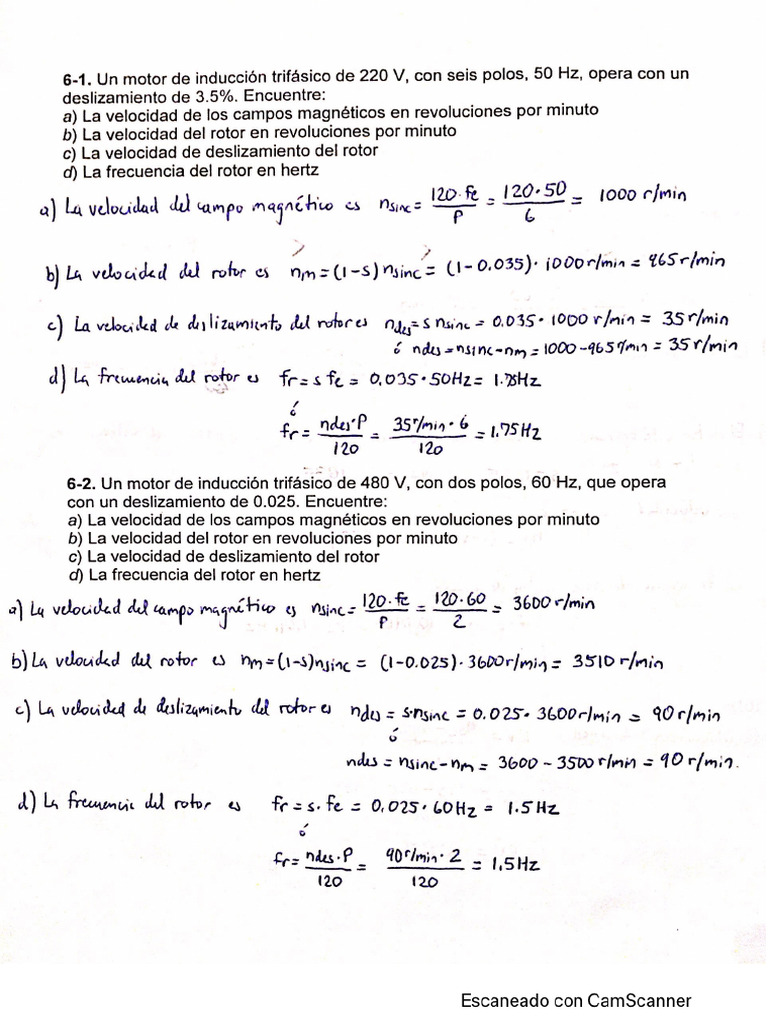 6-1. Un motor de inducción trifásico de 220 V, con seis polos, 50 Hz, opera con un
deslizamiento de 3.5%. Encuentre:
a) La velocidad de los campos magnéticos en revoluciones por minuto
b) La velocidad del rotor en revoluciones por minuto
c) La velocidad de deslizamiento del rotor
d) La frecuencia del rotor en hertz
a) La velocidad del campo magnético es nsinc = 120·fe/P = 120·50/6 = 1000 r/min
b) La velocidad del rotor es nm = (1-s) nsinc = (1-0.035)· 1000 r/min = 965 r/min
c) La velocidad de deslizamiento del rotor es ndes = s nsinc = 0.035· 1000 r/min = 35 r/min
ó ndes = nsinc-nm = 1000-965 r/min = 35 r/min
d) La frecuencia del rotor es fr = s fe = 0.035·50Hz = 1.75Hz
ó
fr = ndes·P/120 = 35 r/min · 6/120 = 1.75 Hz
6-2. Un motor de inducción trifásico de 480 V, con dos polos, 60 Hz, que opera
con un deslizamiento de 0.025. Encuentre:
a) La velocidad de los campos magnéticos en revoluciones por minuto
b) La velocidad del rotor en revoluciones por minuto
c) La velocidad de deslizamiento del rotor
d) La frecuencia del rotor en hertz
a) La velocidad del campo magnético es nsinc = 120·fe/P = 120·60/2 = 3600 r/min
b) La velocidad del rotor es nm = (1-s)nsinc = (1-0.025)·3600 r/min = 3510 r/min
c) La velocidad de deslizamiento del rotor es ndes = s·nsinc = 0.025· 3600 r/min = 90 r/min
ó
ndes = nsinc-nm = 3600 - 3500 r/min = 90 r/min.
d) La frecuencia del rotor es fr = s·fe = 0,025·60Hz = 1.5 Hz
ó
fr = ndes·P/120 = 90 r/min · 2/120 = 1,5 Hz
Escaneado con CamScanner